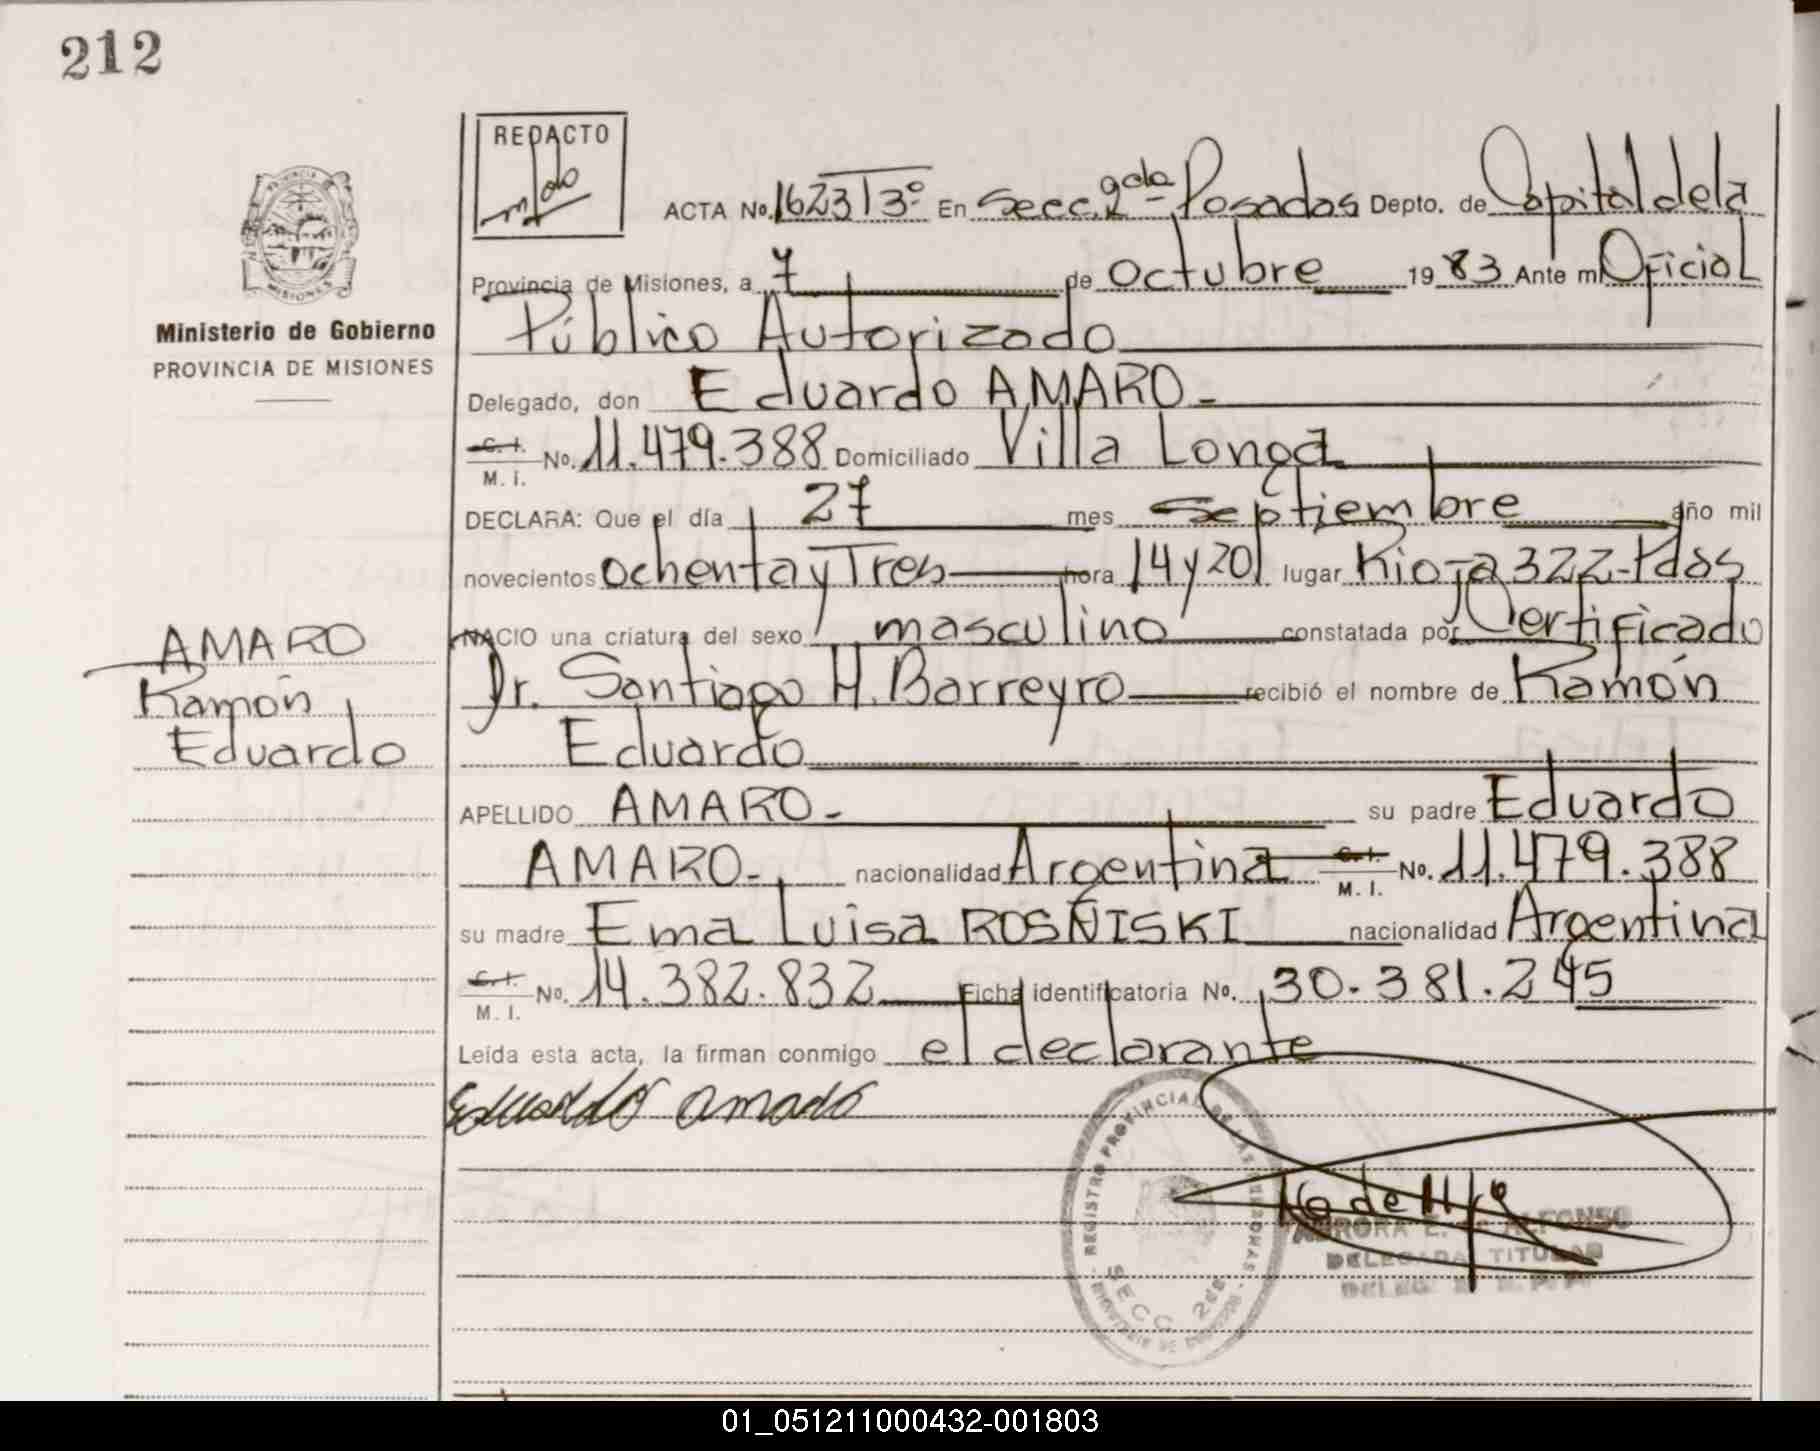 212
REDACTO
ACTA No. 1623 T 3º En Secc. 2da - Posadas Depto. de Capital de la
Provincia de Misiones, a 7 de Octubre 1983 Ante mi Oficial
Ministerio de Gobierno
PROVINCIA DE MISIONES
Público Autorizado
Delegado, don Eduardo AMARO -
C. I. No. 11.479.388 Domiciliado Villa Longa
M. I.
DECLARA: Que el día 27 mes septiembre año mil
novecientos ochenta y Tres hora 14 y 20 lugar Rioja 322 - Pdas
NACIO una criatura del sexo masculino constatada por Certificado
Dr. Santiago H. Barreyro recibió el nombre de Ramón
Eduardo
AMARO
Ramón
Eduardo
APELLIDO AMARO - su padre Eduardo
AMARO - nacionalidad Argentina C. I. No. 11.479.388
M. I.
su madre Ema Luisa ROSÑISKI nacionalidad Argentina
C. I. No. 14.382.832 Ficha identificatoria No. 30.381.245
M. I.
Leída esta acta, la firman conmigo el declarante
Eduardo amaro
REGISTRO PROVINCIAL DE LAS PERSONAS
SECC. 2da
AURORA E. DE ALFONSO
DELEGADA TITULAR
01_051211000432-001803